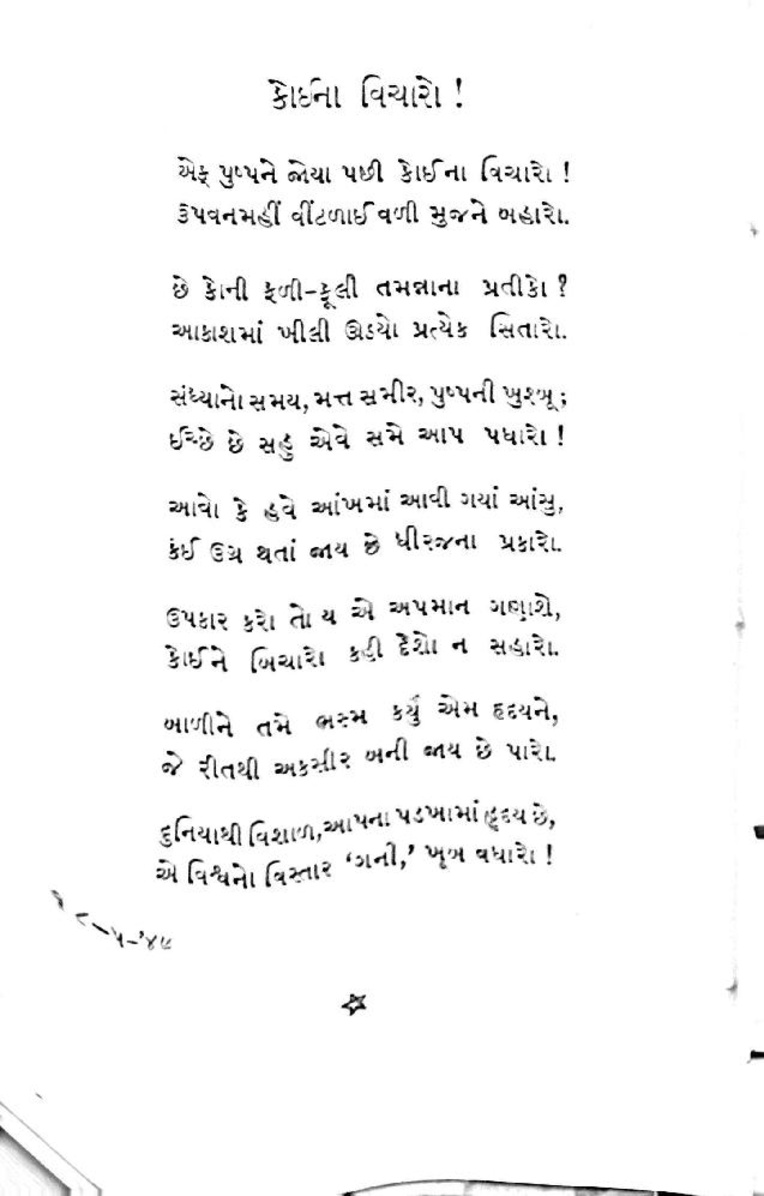 કોઈના વિચારો !
એક પુષ્પને જોયા પછી કોઈના વિચારો !
ઉપવનમહીં વીંટળાઈ વળી મુજને બહારો.
છે કોની ફળી-ફૂલી તમન્નાના પ્રતીકો ?
આકાશમાં ખીલી ઊઠયો પ્રત્યેક સિતારો.
સંધ્યાનો સમય, મત્ત સમીર, પુષ્પની ખુશ્બૂ;
ઈચ્છે છે સહુ એવે સમે આપ પધારો !
આવો કે હવે આંખમાં આવી ગયાં આંસુ,
કંઈ ઉગ્ર થતાં જાય છે ધીરજના પ્રકારો.
ઉપકાર કરો તો ય એ અપમાન ગણાશે,
કોઈને બિચારો કહી દેશો ન સહારો.
બાળીને તમે ભસ્મ કર્યું એમ હૃદયને,
જે રીતથી અકસીર બની જાય છે પારો.
દુનિયાથી વિશાળ, આપના પડખામાં હૃદય છે,
એ વિશ્વનો વિસ્તાર ‘ગની,’ ખૂબ વધારો !